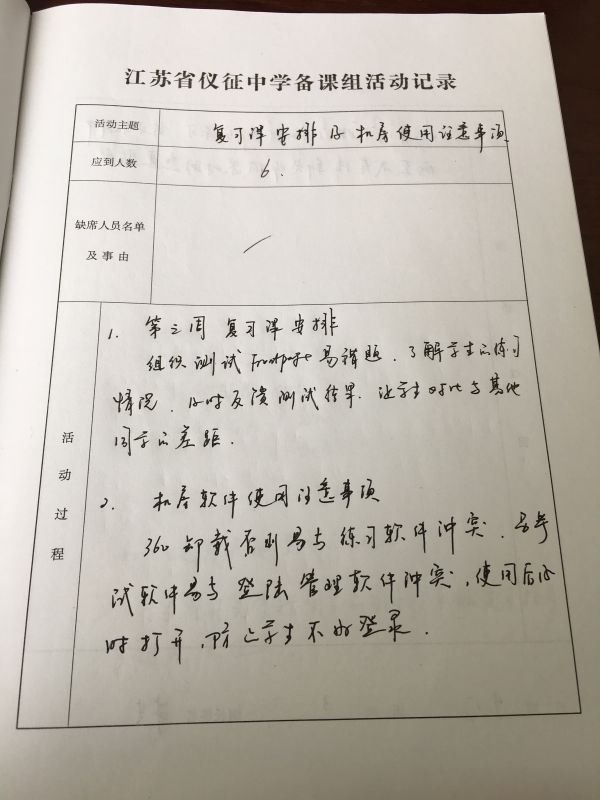 江苏省仪征中学备课组活动记录
活动主题 复习课安排及机房使用注意事项
应到人数 6.
缺席人员名单
及事由
活动过程
1. 第三周 复习课安排
组织测试Frontpage易错题.了解学生的练习
情况.及时反馈测试结果.让学生对比与其他
同学的差距.
2. 机房软件使用注意事项
360卸载否则易与练习软件冲突.且考
试软件易与登陆管理软件冲突,使用后及
时打开,防止学生不好登录.